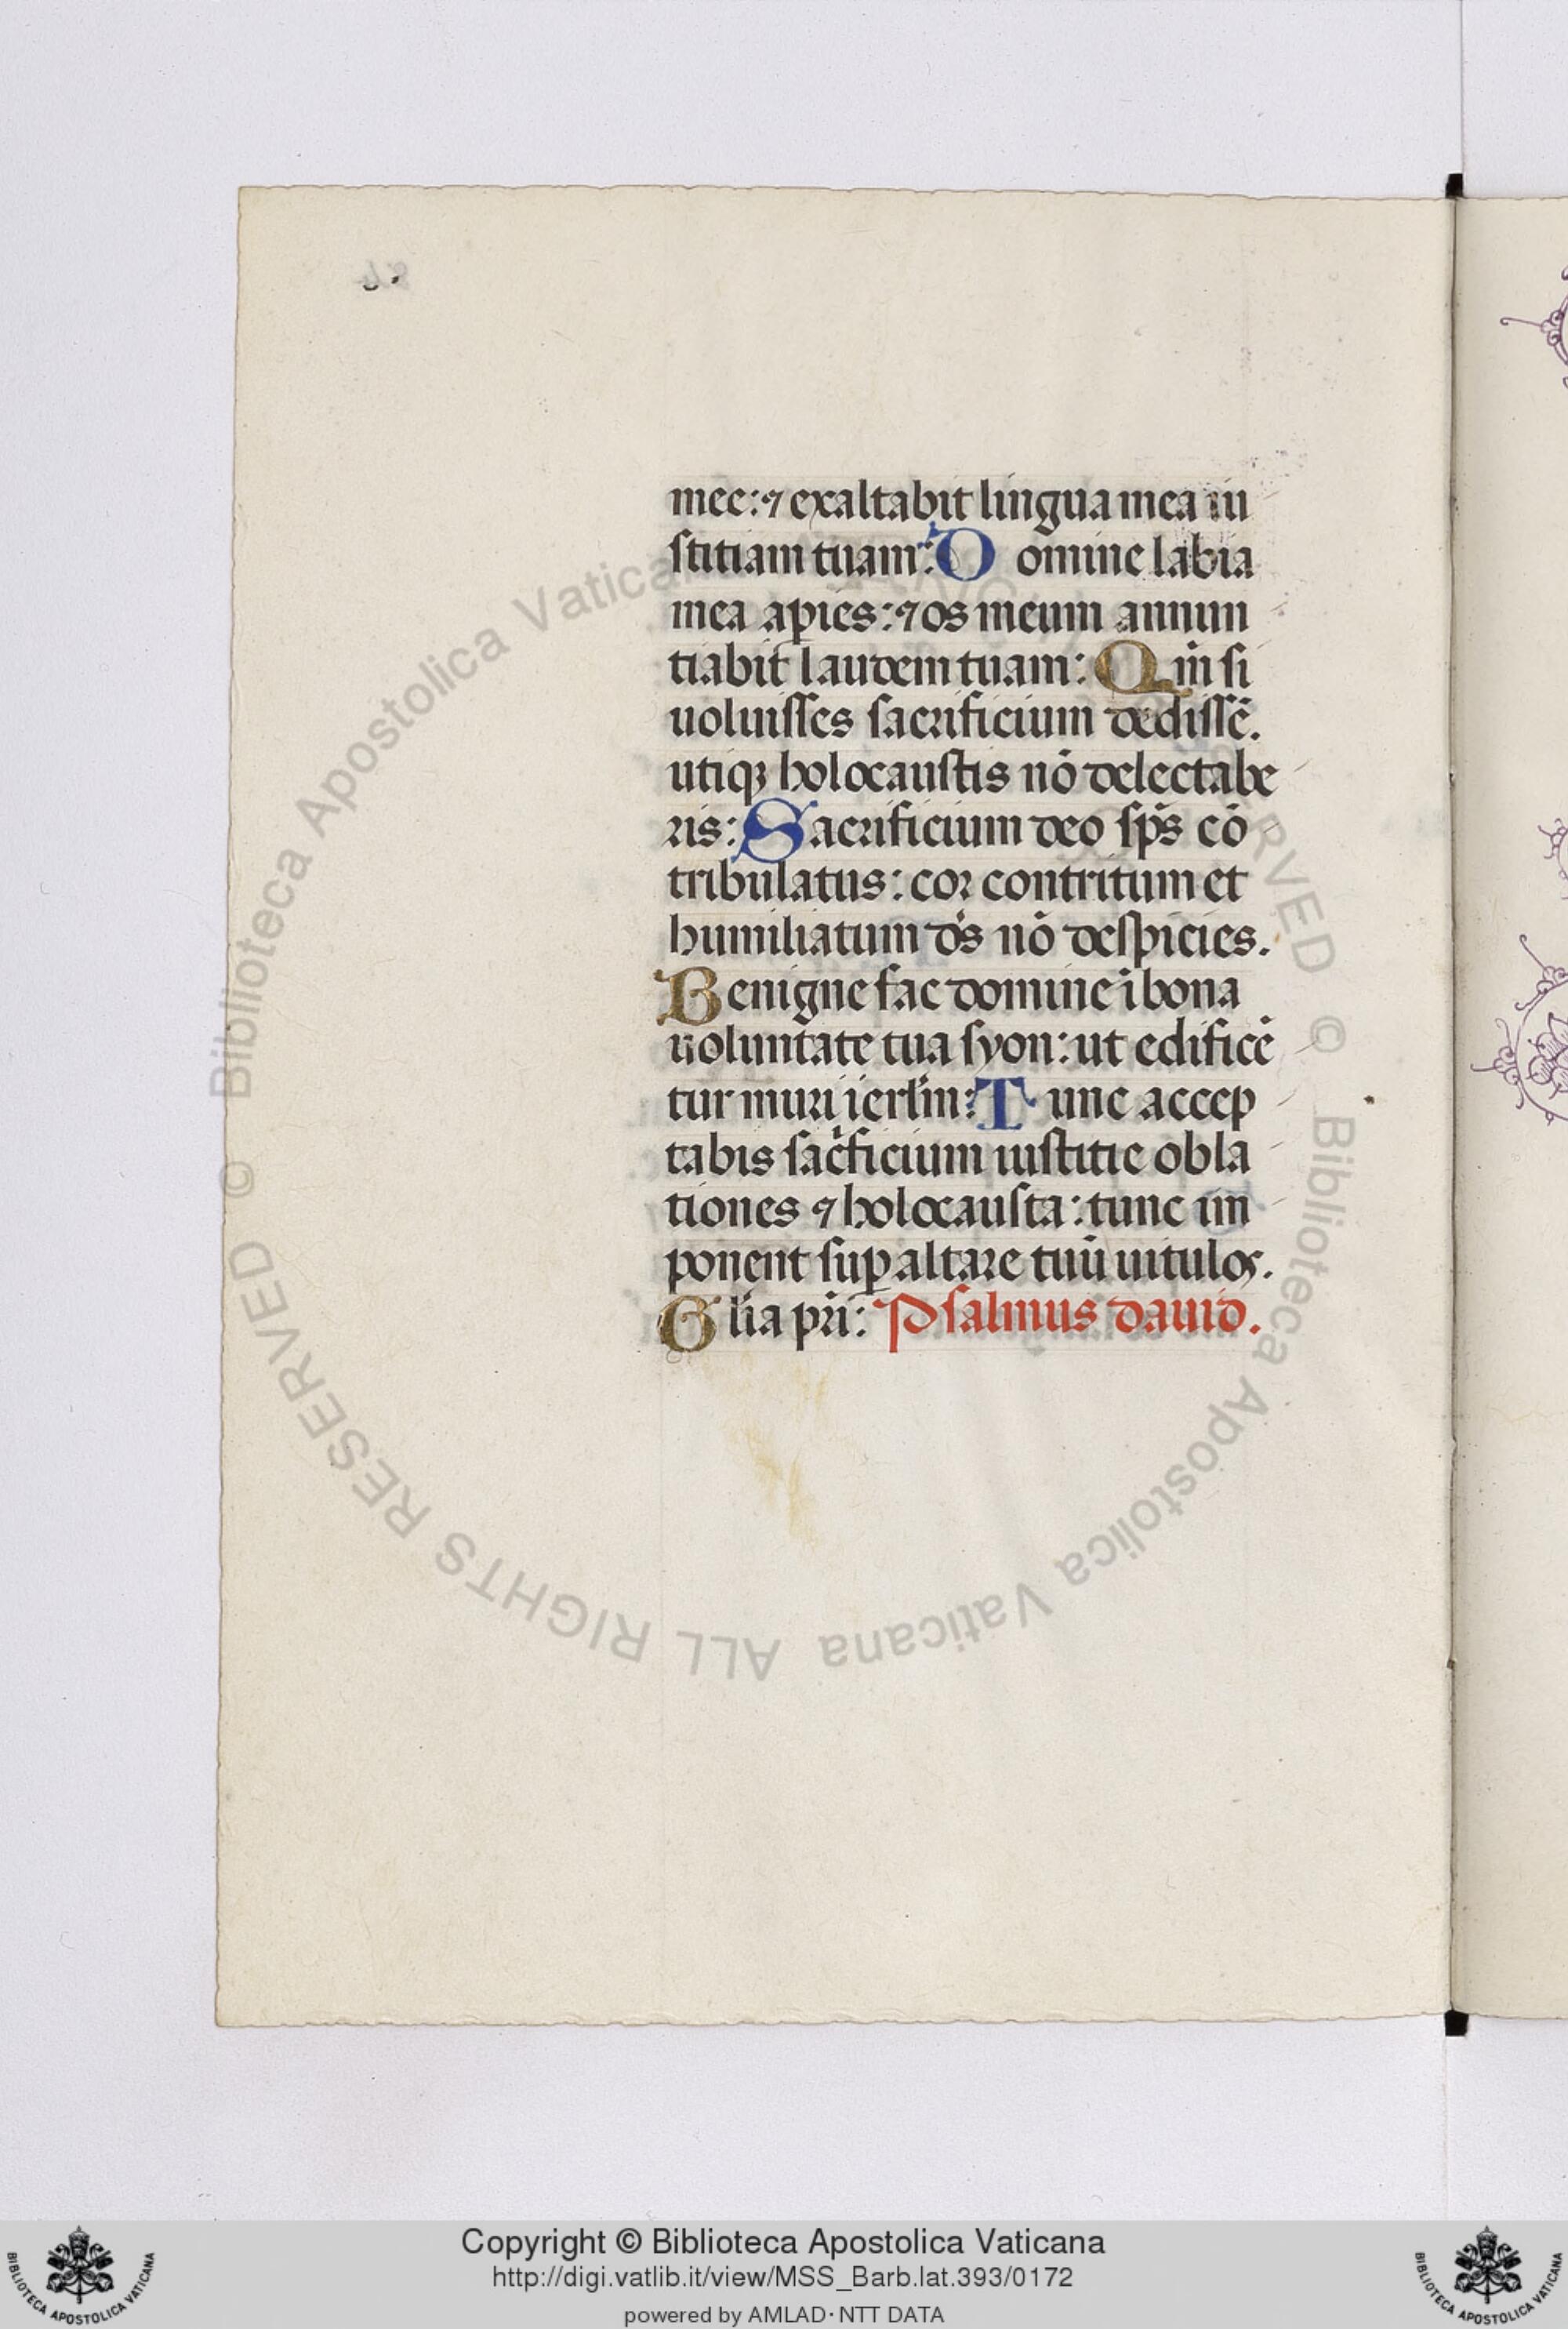 mee: ⁊ exaltabit lingua mea iu
stitiam tuam: Domine labia
mea apies: ⁊ os meum annun
tiabit laudem tuam: Qm̄ si
uoluisses sacrificium dedissē.
utiqꝫ holocaustis nō delectabe
ris: Sacrificium deo sp̄s cō
tribulatus: cor contritum et
humiliatum d̄s nō despicies.
Benigne fac domine ī bona
uoluntate tua syon: ut edificē
tur muri ierl̄m: Tunc accep
tabis sac̄ficium iustitie obla
tiones ⁊ holocausta: tunc im
ponent suꝑ altare tuū uitulos.
Gl̄ia pr̄i: Psalmus dauid.
© Biblioteca Apostolica Vaticana
ALL RIGHTS RESERVED © Biblioteca Apostolica Vaticana
Copyright © Biblioteca Apostolica Vaticana
http://digi.vatlib.it/view/MSS_Barb.lat.393/0172
powered by AMLAD·NTT DATA
BIBLIOTECA APOSTOLICA VATICANA
BIBLIOTECA APOSTOLICA VATICANA